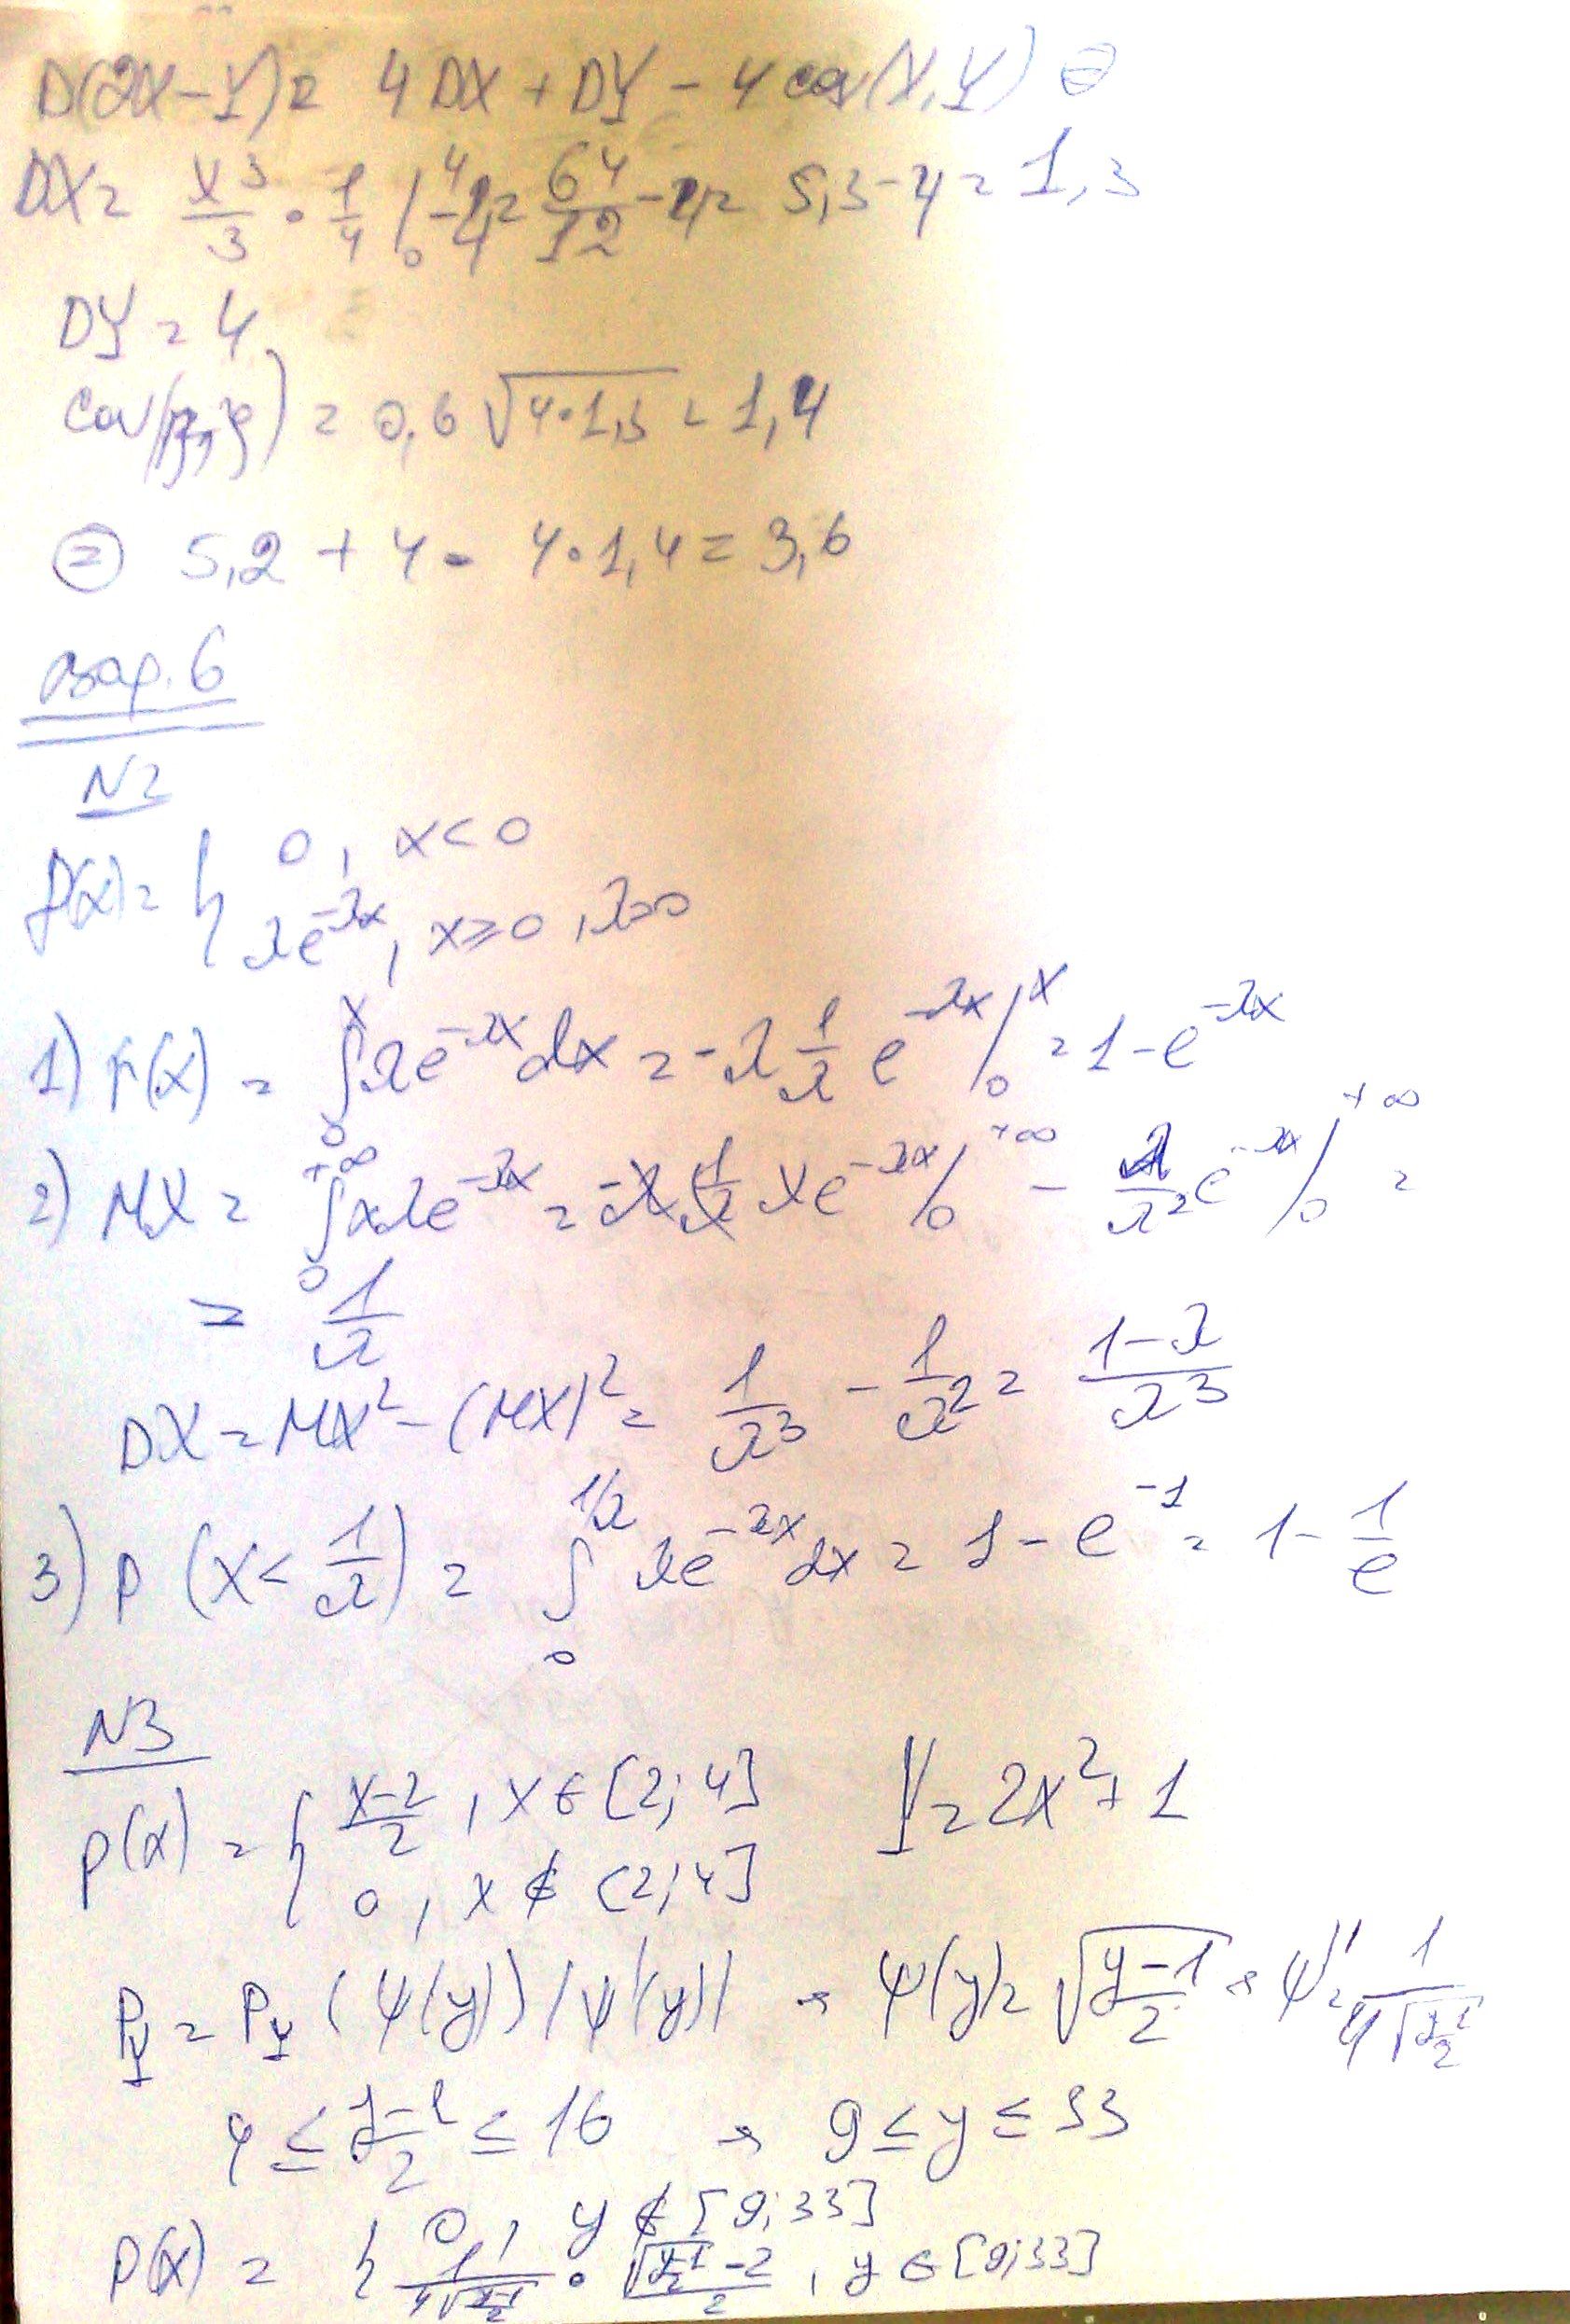 D(2X-Y) = 4DX + DY - 4cov(X,Y) ⊜
DX = x³/3 · 1/4 |₀⁴ - 4 = 64/12 - 4 = 5,3 - 4 = 1,3
DY = 4
cov(η,ξ) = 0,6 √(4·1,3) = 1,4
⊜ 5,2 + 4 - 4·1,4 = 3,6
вар. 6
N2
f(x) = { 0, x<0
λe^(-λx), x≥0, λ>0
1) F(x) = ∫₀ˣ λe^(-λx)dx = -λ 1/λ e^(-λx) |₀ˣ = 1 - e^(-λx)
2) MX = ∫₀^(+∞) xλe^(-λx) = -λ 1/λ xe^(-λx) |₀^(+∞) - λ/λ² e^(-λx) |₀^(+∞) =
= 1/λ
DX = MX² - (MX)² = 1/λ³ - 1/λ² = (1-λ)/λ³
3) P(X < 1/λ) = ∫₀^(1/λ) λe^(-λx)dx = 1 - e^(-1) = 1 - 1/e
N3
p(x) = { (x-2)/2, x ∈ [2;4] Y = 2x² + 1
0, x ∉ [2;4]
P_Y = P_Y (ψ(y)) |ψ'(y)| → ψ(y) = √((y-1)/2) → ψ' = 1/(4√((y-1)/2))
4 ≤ (y-1)/2 ≤ 16 → 9 ≤ y ≤ 33
P(x) = { 0, y ∉ [9;33]
1/(4√((y-1)/2)) · (√((y-1)/2) - 2)/2, y ∈ [9;33]